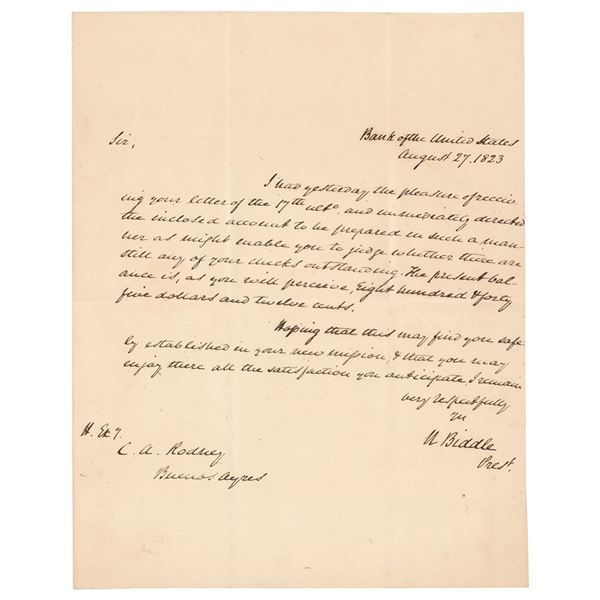 Bank of the United States
Sir,
August 27. 1823
I had yesterday the pleasure of receiv
ing your letter of the 17th ulto, and immediately directed
the inclosed account to be prepared in such a man
ner as might enable you to judge whether there are
still any of your checks outstanding. The present bal
ance is, as you will perceive Eight hundred & forty
five dollars and twelve cents.
Hoping that this may find you safe
ly established in your new mission, & that you may
enjoy there all the satisfaction you anticipate, I remain
very respectfully
Yrs
N Biddle
Prest.
H. Exy.
C. A. Rodney
Buenos Ayres